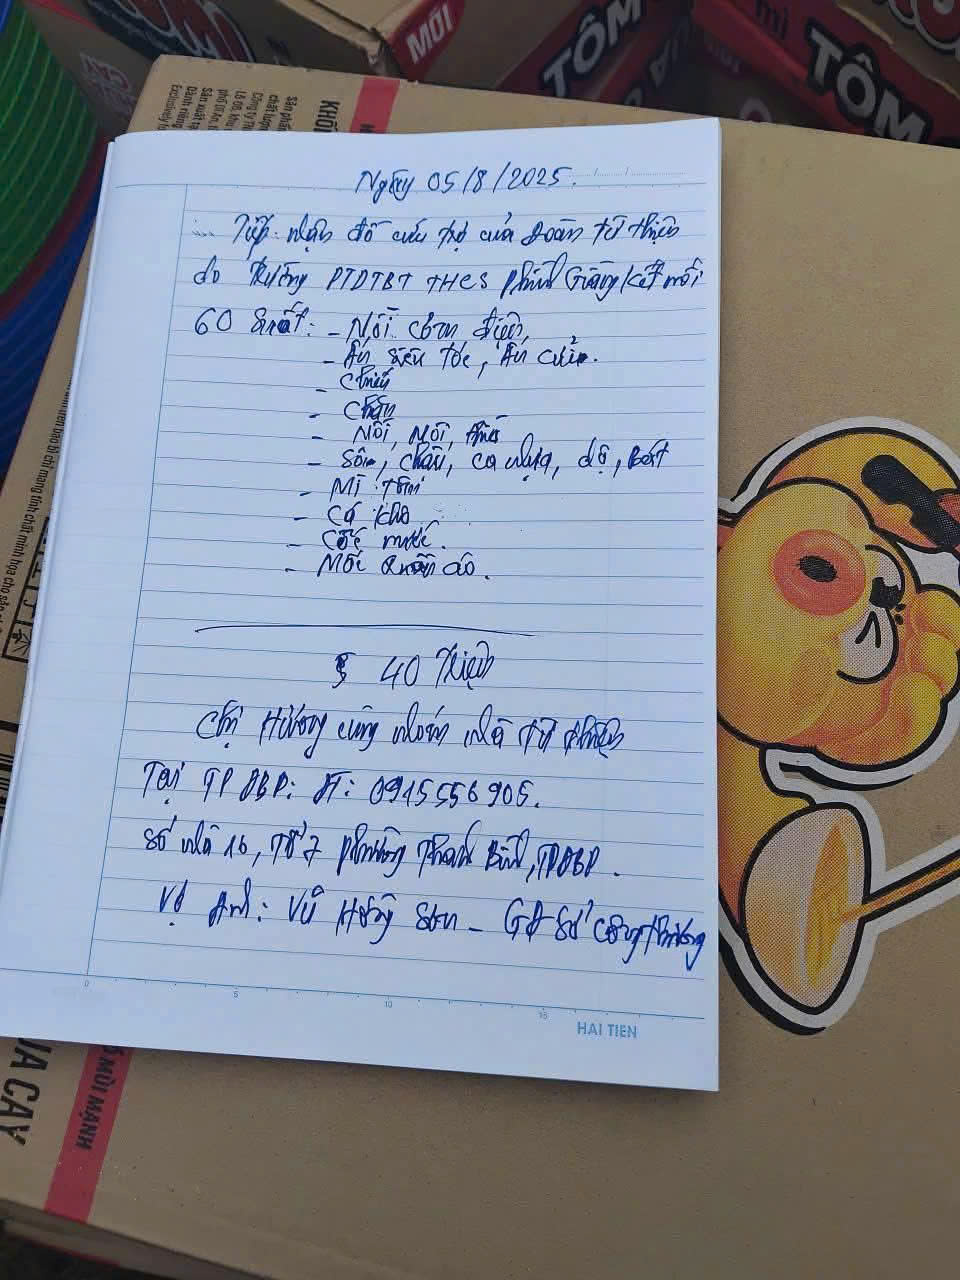 MÙI
TÔM
mì
TÔM
KHÔ
Ngày 05/8/2025.
Tiếp nhận đồ cứu trợ của Đoàn từ thiện
do trường PTDTBT THCS Phình Giàng kết nối
60 suất: - Nồi cơm điện,
- Ấn siêu tốc, Ấn
- Chiếu
- Chăn
- Nồi, Môi,
- chậu, ca nhựa, Bát
- Mì tôm
- Cá khô
- Cốc
- Móc quần áo.
40 triệu
Chị Hương cùng nhóm nhà từ thiện
Tại TP ĐBP: ĐT: 0915556905.
Số nhà 16, Tổ 7 phường Thanh Bình, TPĐBP.
Vợ Anh: Vũ Hồng Sơn - GĐ Sở Công thương
0
5
10
15
HAI TIEN
MÙI MẠNH
UA CAY